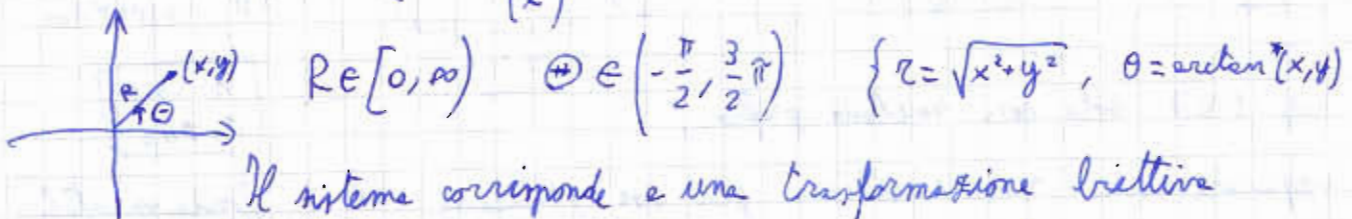 (x)
(x,y) R∈[0,∞) Θ∈(-π/2, 3/2 π) {r=√x²+y² , θ=arctan*(x,y)
r θ
Il sistema corrisponde a una trasformazione biettiva